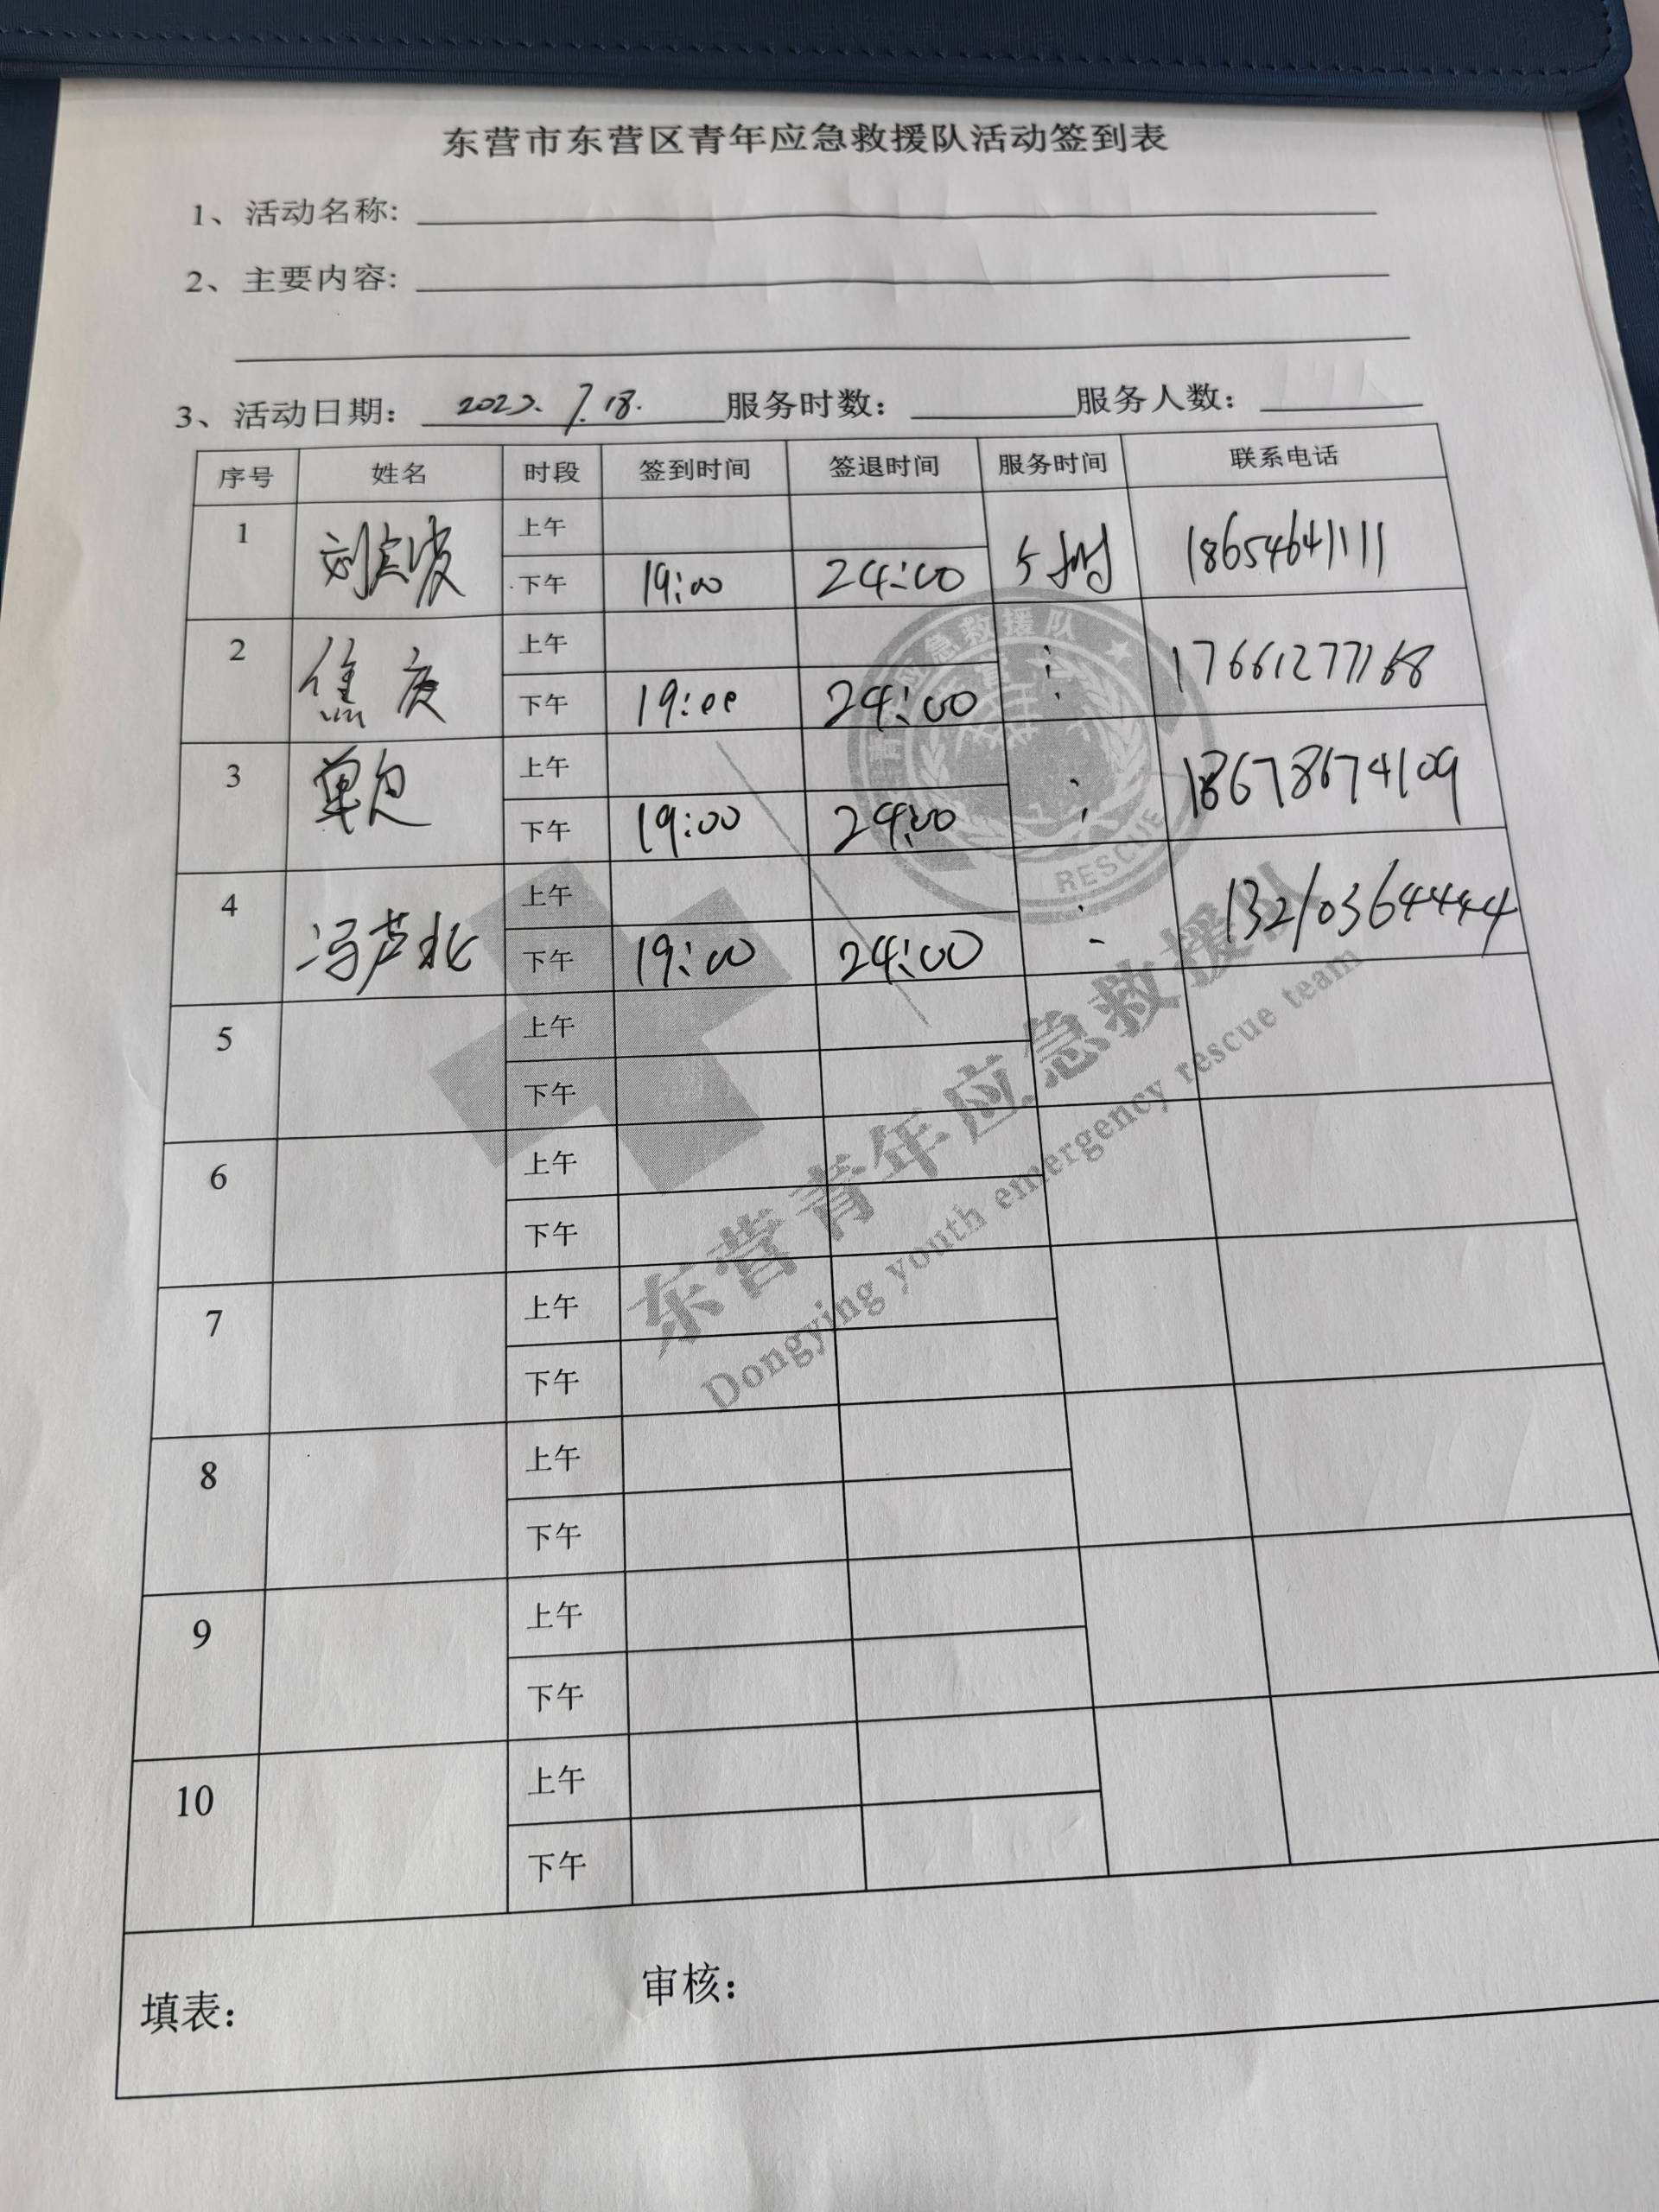 东营市东营区青年应急救援队活动签到表
1、活动名称:
2、主要内容:
3、活动日期: 7.18. 服务时数: 服务人数:
序号 姓名 时段 签到时间 签退时间 服务时间 联系电话
1 上午
下午 19:00 24:00 5小时 18654641111
2 焦庆 上午
下午 19:00 24:00 17661277168
3 上午
下午 19:00 24:00 18678674109
4 冯芦北 上午
下午 19:00 24:00 13210364444
5 上午
下午
6 上午
下午
7 上午
下午
8 上午
下午
9 上午
下午
10 上午
下午
填表: 审核:
青年应急救援队
RESCUE
东营青年应急救援队
Dongying youth emergency rescue team